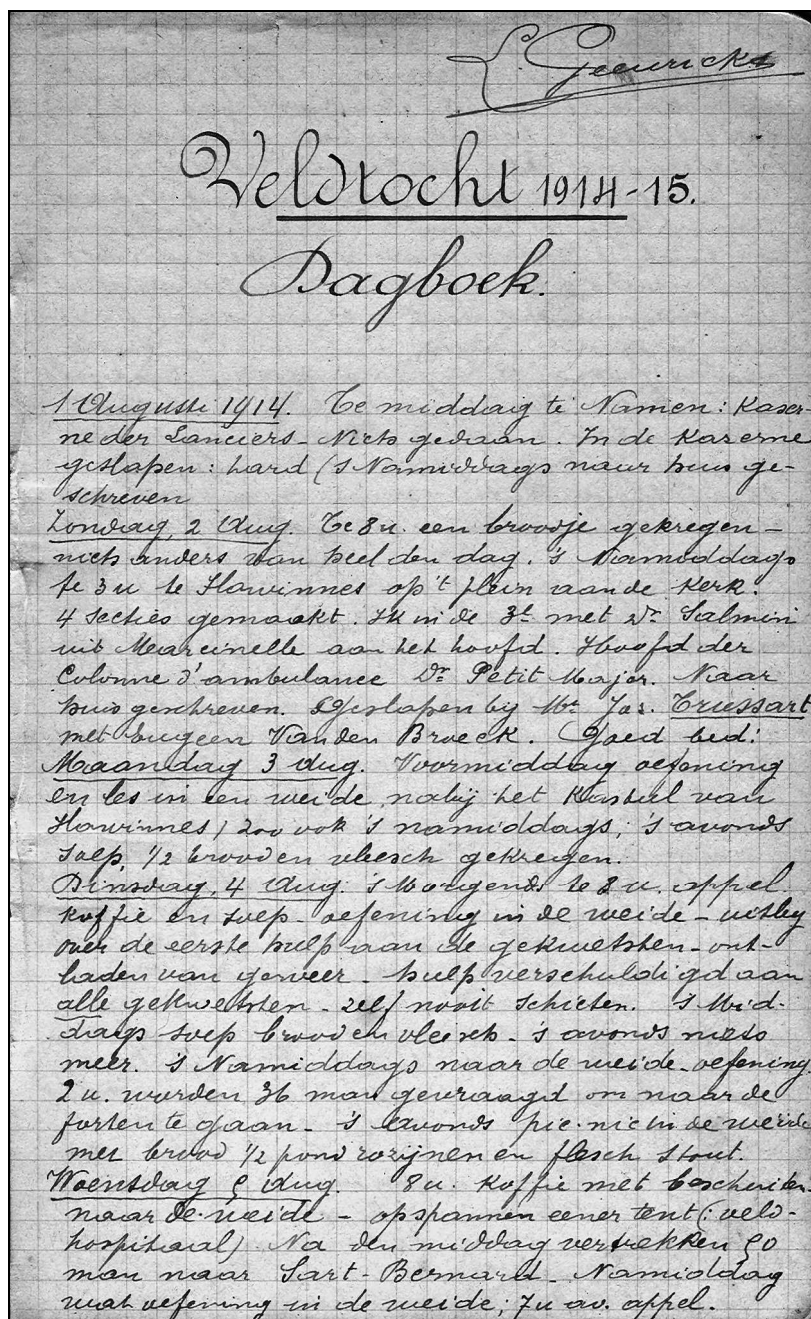 L. Geeurickx
Veldtocht 1914-15.
Dagboek.
1 Augusti 1914. Te middag te Namen: Kazer-
ne der Lanciers - Niets gedaan. In de Kazerne
geslapen: hard ('s Namiddags naar huis ge-
schreven
Zondag, 2 Aug. Te 8 u. een broodje gekregen -
niets anders van heel den dag. 's Namiddags
te 3 u te Hawinnes op 't plein aan de Kerk.
4 secties gemaakt. Ik in de 3e met Dr. Salmin
uit Marcinelle aan het hoofd. Hoofd der
Colonne d'ambulance Dr. Petit Major. Naar
huis geschreven. Geslapen bij Mr. Jos. Triessart
met Eugeen Vanden Broeck. Goed bed!
Maandag 3 Aug. Voormiddag oefening
en les in een weide nabij het Kasteel van
Hawinnes / zoo ook 's namiddags; 's avonds
soep, 1/2 brood en vleesch gekregen.
Dinsdag, 4 Aug. 's Morgends te 8 u. appel.
Koffie en soep - oefening in de weide - uitleg
over de eerste hulp aan de gekwetsten - ont-
laden van geweer - hulp verschuldigd aan
alle gekwetsten - zelf nooit schieten. 's Mid-
dags soep brood en vleesch - 's avonds niets
meer. 's Namiddags naar de weide - oefening
2 u. worden 36 man gevraagd om naar de
forten te gaan - 's avonds pic-nic in de weide
met brood 1/2 pond rozijnen en flesch stout.
Woensdag 5 Aug. 8 u. Koffie met beschuiten -
naar de weide - opspannen eener tent (: veld-
hospitaal) Na den middag vertrekken 50
man naar Sart-Bernard - Namiddag
wat oefening in de weide; 7 u av. appel.